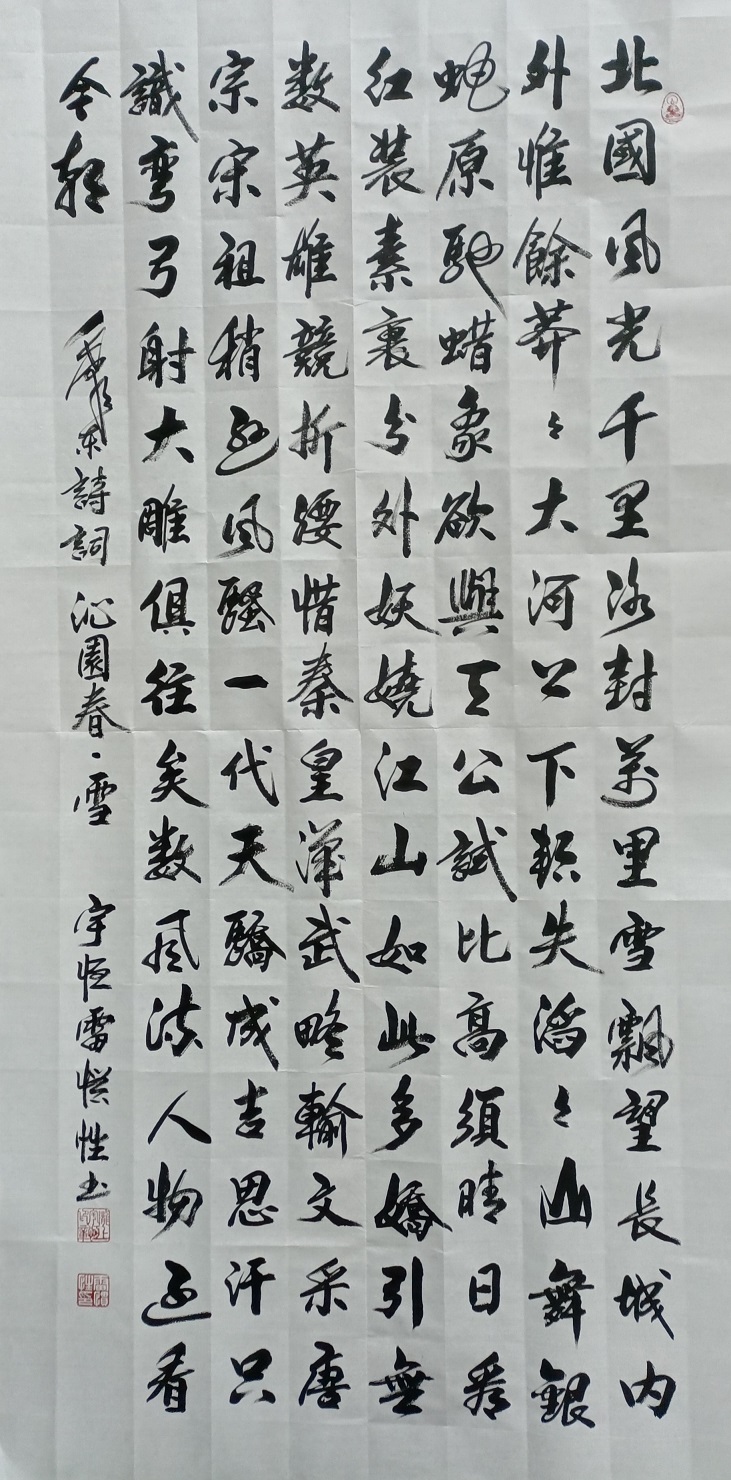 北國风光千里冰封萬里雪飄望長城内
外惟餘莽〻大河上下頓失滔〻山舞銀
蛇原馳蜡象欲與天公試比高須晴日看
红装素裹分外妖嬈江山如此多嬌引無
数英雄競折腰惜秦皇漢武略輸文采唐
宗宋祖稍逊风騷一代天驕成吉思汗只
識弯弓射大雕俱往矣数风流人物还看
今朝
毛澤东詩詞 沁園春·雪 宇恒雷性书